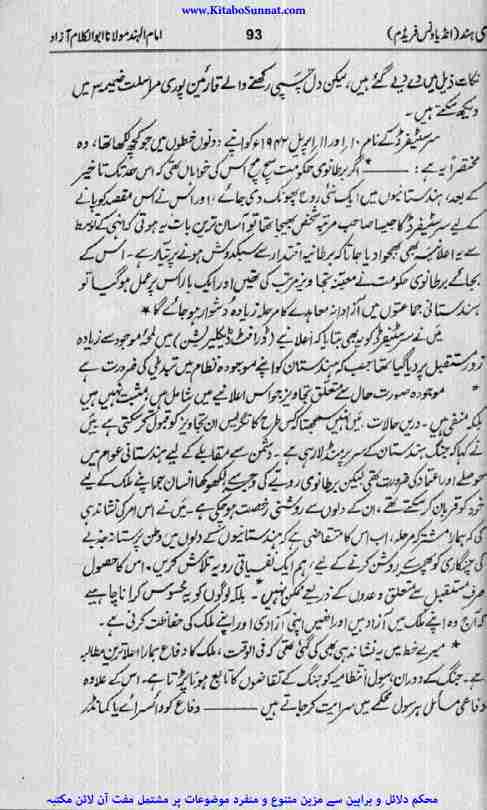 www.KitaboSunnat.com
سی ہند (انڈیا ونس فریڈم) 93 امام الہند مولانا ابوالکلام آزاد
نکات ذیل میں دے دیے گئے ہیں، لیکن دل چسپی رکھنے والے قارئین پوری مراسلت ضمیمہ ۳ میں
دیکھ سکتے ہیں۔
سر سٹیفرڈ کے نام ۱۰ اور ۱۱ اپریل ۱۹۴۲ء کو اپنے دونوں خطوں میں جو کچھ لکھا تھا، وہ
مختصراً یہ ہے: ——— * اگر برطانوی حکومت سچ مچ اس کی خواہاں تھی کہ اس حد تک تاخیر
کے بعد، ہندستانیوں میں ایک نئی روح پھونک دی جائے، اور اس نے اس مقصد کو پانے
کے لیے سر سٹیفرڈ کا جیسا صاحب مرتبہ شخص بھیجا تھا تو آسان ترین بات یہ ہوتی کہ انہی کے توسط
سے یہ اعلانیہ بھی بھجوا دیا جاتا کہ برطانیہ اقتدار سے سبکدوش ہونے پر تیار ہے۔ اس کے
بجائے برطانوی حکومت نے معینہ تجاویز مرتب کی تھیں اور ایک بار اس پر عمل ہو گیا تو
ہندستانی جماعتوں میں آزادانہ معاہدے کا مرحلہ زیادہ دشوار ہو جائے گا *
میں نے سر سٹیفرڈ کو یہ بھی بتایا کہ اعلانیے (ڈرافٹ ڈیکلیریشن) میں لمحۂ موجود سے زیادہ
زور مستقبل پر دیا گیا تھا جب کہ ہندستان کو اپنے موجودہ نظام میں تبدیلی کی ضرورت ہے
* موجودہ صورت حال سے متعلق تجاویز جو اس اعلانیے میں شامل ہیں، مثبت نہیں ہیں
بلکہ منفی ہیں۔ دریں حالات، میں نہیں سمجھتا کس طرح کانگریس ان تجاویز کو قبول کر سکتی ہے میں
نے کہا کہ جنگ ہندستان کے سر پر منڈلا رہی ہے۔ دشمن سے مقابلے کے لیے ہندستانی عوام میں
حوصلے اور اعتماد کی ضرورت تھی لیکن برطانوی رویے کی وجہ سے لکھوکھا انسان جو اپنے ملک کے لیے
خود کو قربان کر سکتے تھے، ان کے دلوں سے روشنی رخصت ہو چکی ہے۔ میں نے اس امر کی نشاندہی
کی کہ ہمارا مشترکہ مرحلہ، اب اس کا متقاضی ہے کہ ہندستانیوں کے دلوں میں وطن پرستانہ جذبے
کی چنگاری کو پھر سے روشن کرنے کے لیے، ہم ایک نفسیاتی رویہ تلاش کریں۔ اس کا حصول
صرف مستقبل سے متعلق وعدوں کے ذریعے ممکن نہیں * بلکہ لوگوں کو یہ محسوس کرانا چاہیے
کہ آج وہ اپنے ملک میں آزاد ہیں اور انھیں اپنی آزادی اور اپنے ملک کی حفاظت کرنی ہے۔
* میرے خط میں یہ نشاندہی بھی کی گئی تھی کہ فی الوقت، ملک کا دفاع ہمارا اعلا ترین مطالبہ
ہے۔ جنگ کے دوران، سول انتظامیہ کو جنگ کے تقاضوں کا تابع ہونا پڑتا ہے۔ اس کے علاوہ
دفاعی مسائل ہر سول محکمے میں سرایت کر جاتے ہیں ——— دفاع کو وائسرائے یا کمانڈر
محکم دلائل و براہین سے مزین متنوع و منفرد موضوعات پر مشتمل مفت آن لائن مکتبہ